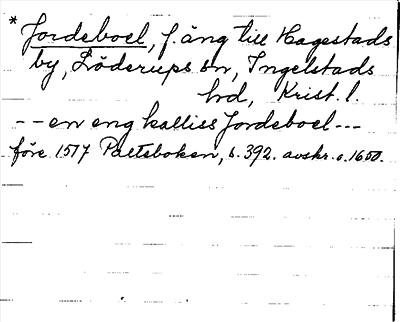 * Jordeboel, f. äng till Hagestads
by, Löderups sn, Ingelstads
hd, Krist. l.
-- en eng kalliss Jordeboel ---
före 1517 Palteboken, s. 392. avskr. o. 1600.